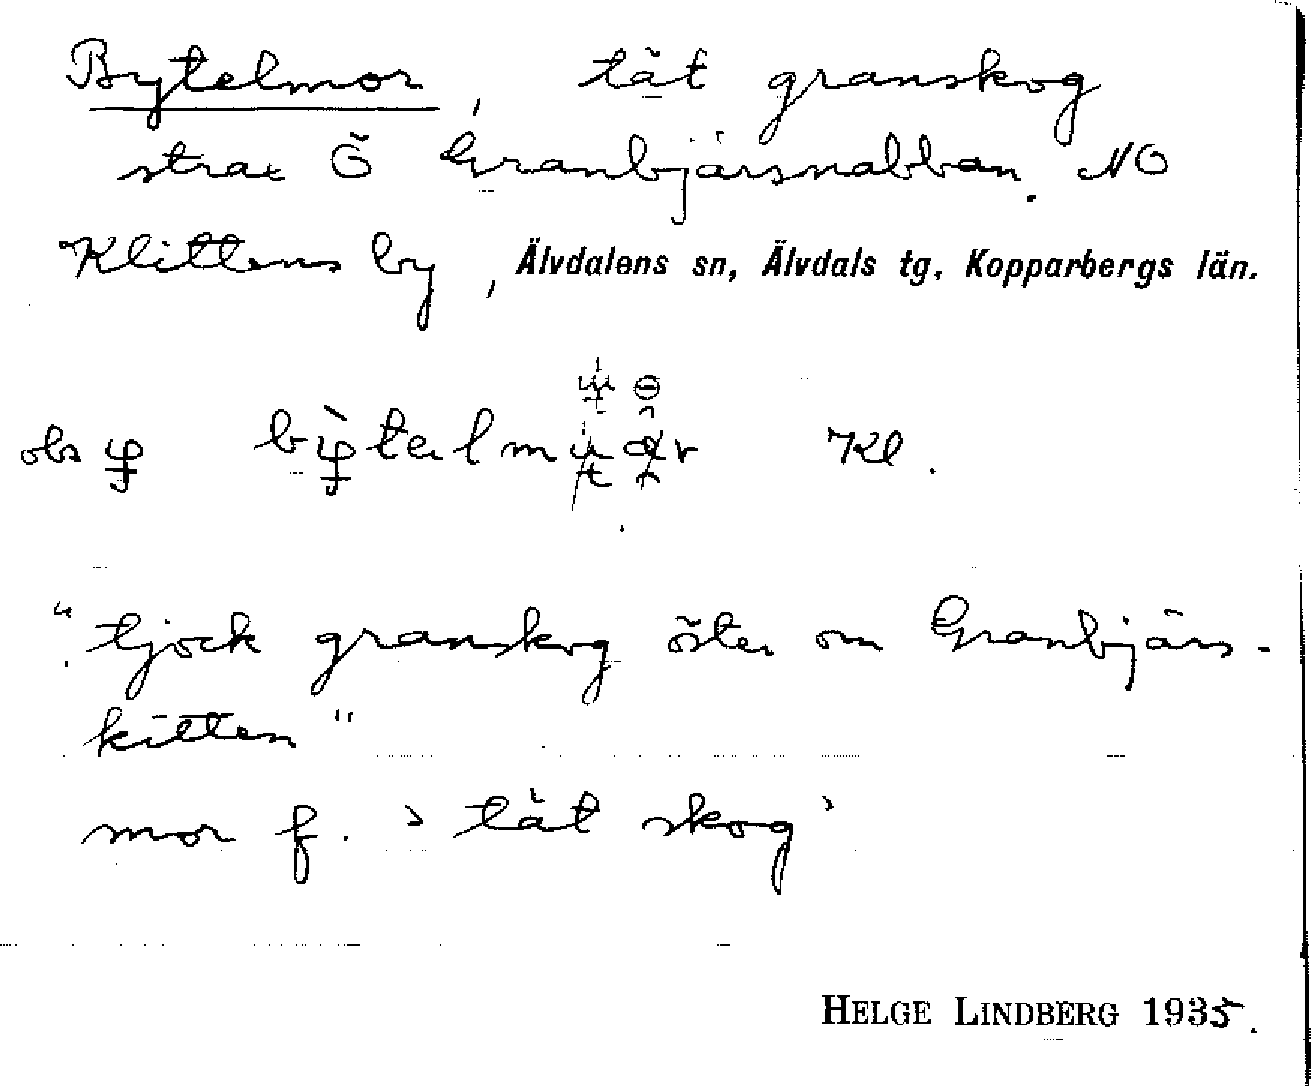 Bytelmor, tät granskog
strax Ö Granbjärsnabban. NO
Klittens by, Älvdalens sn, Älvdals tg, Kopparbergs län.
obs Kl.
"tjock granskog öster om Granbjärs-
kitten"
mor f. 'tät skog'
HELGE LINDBERG 1935.